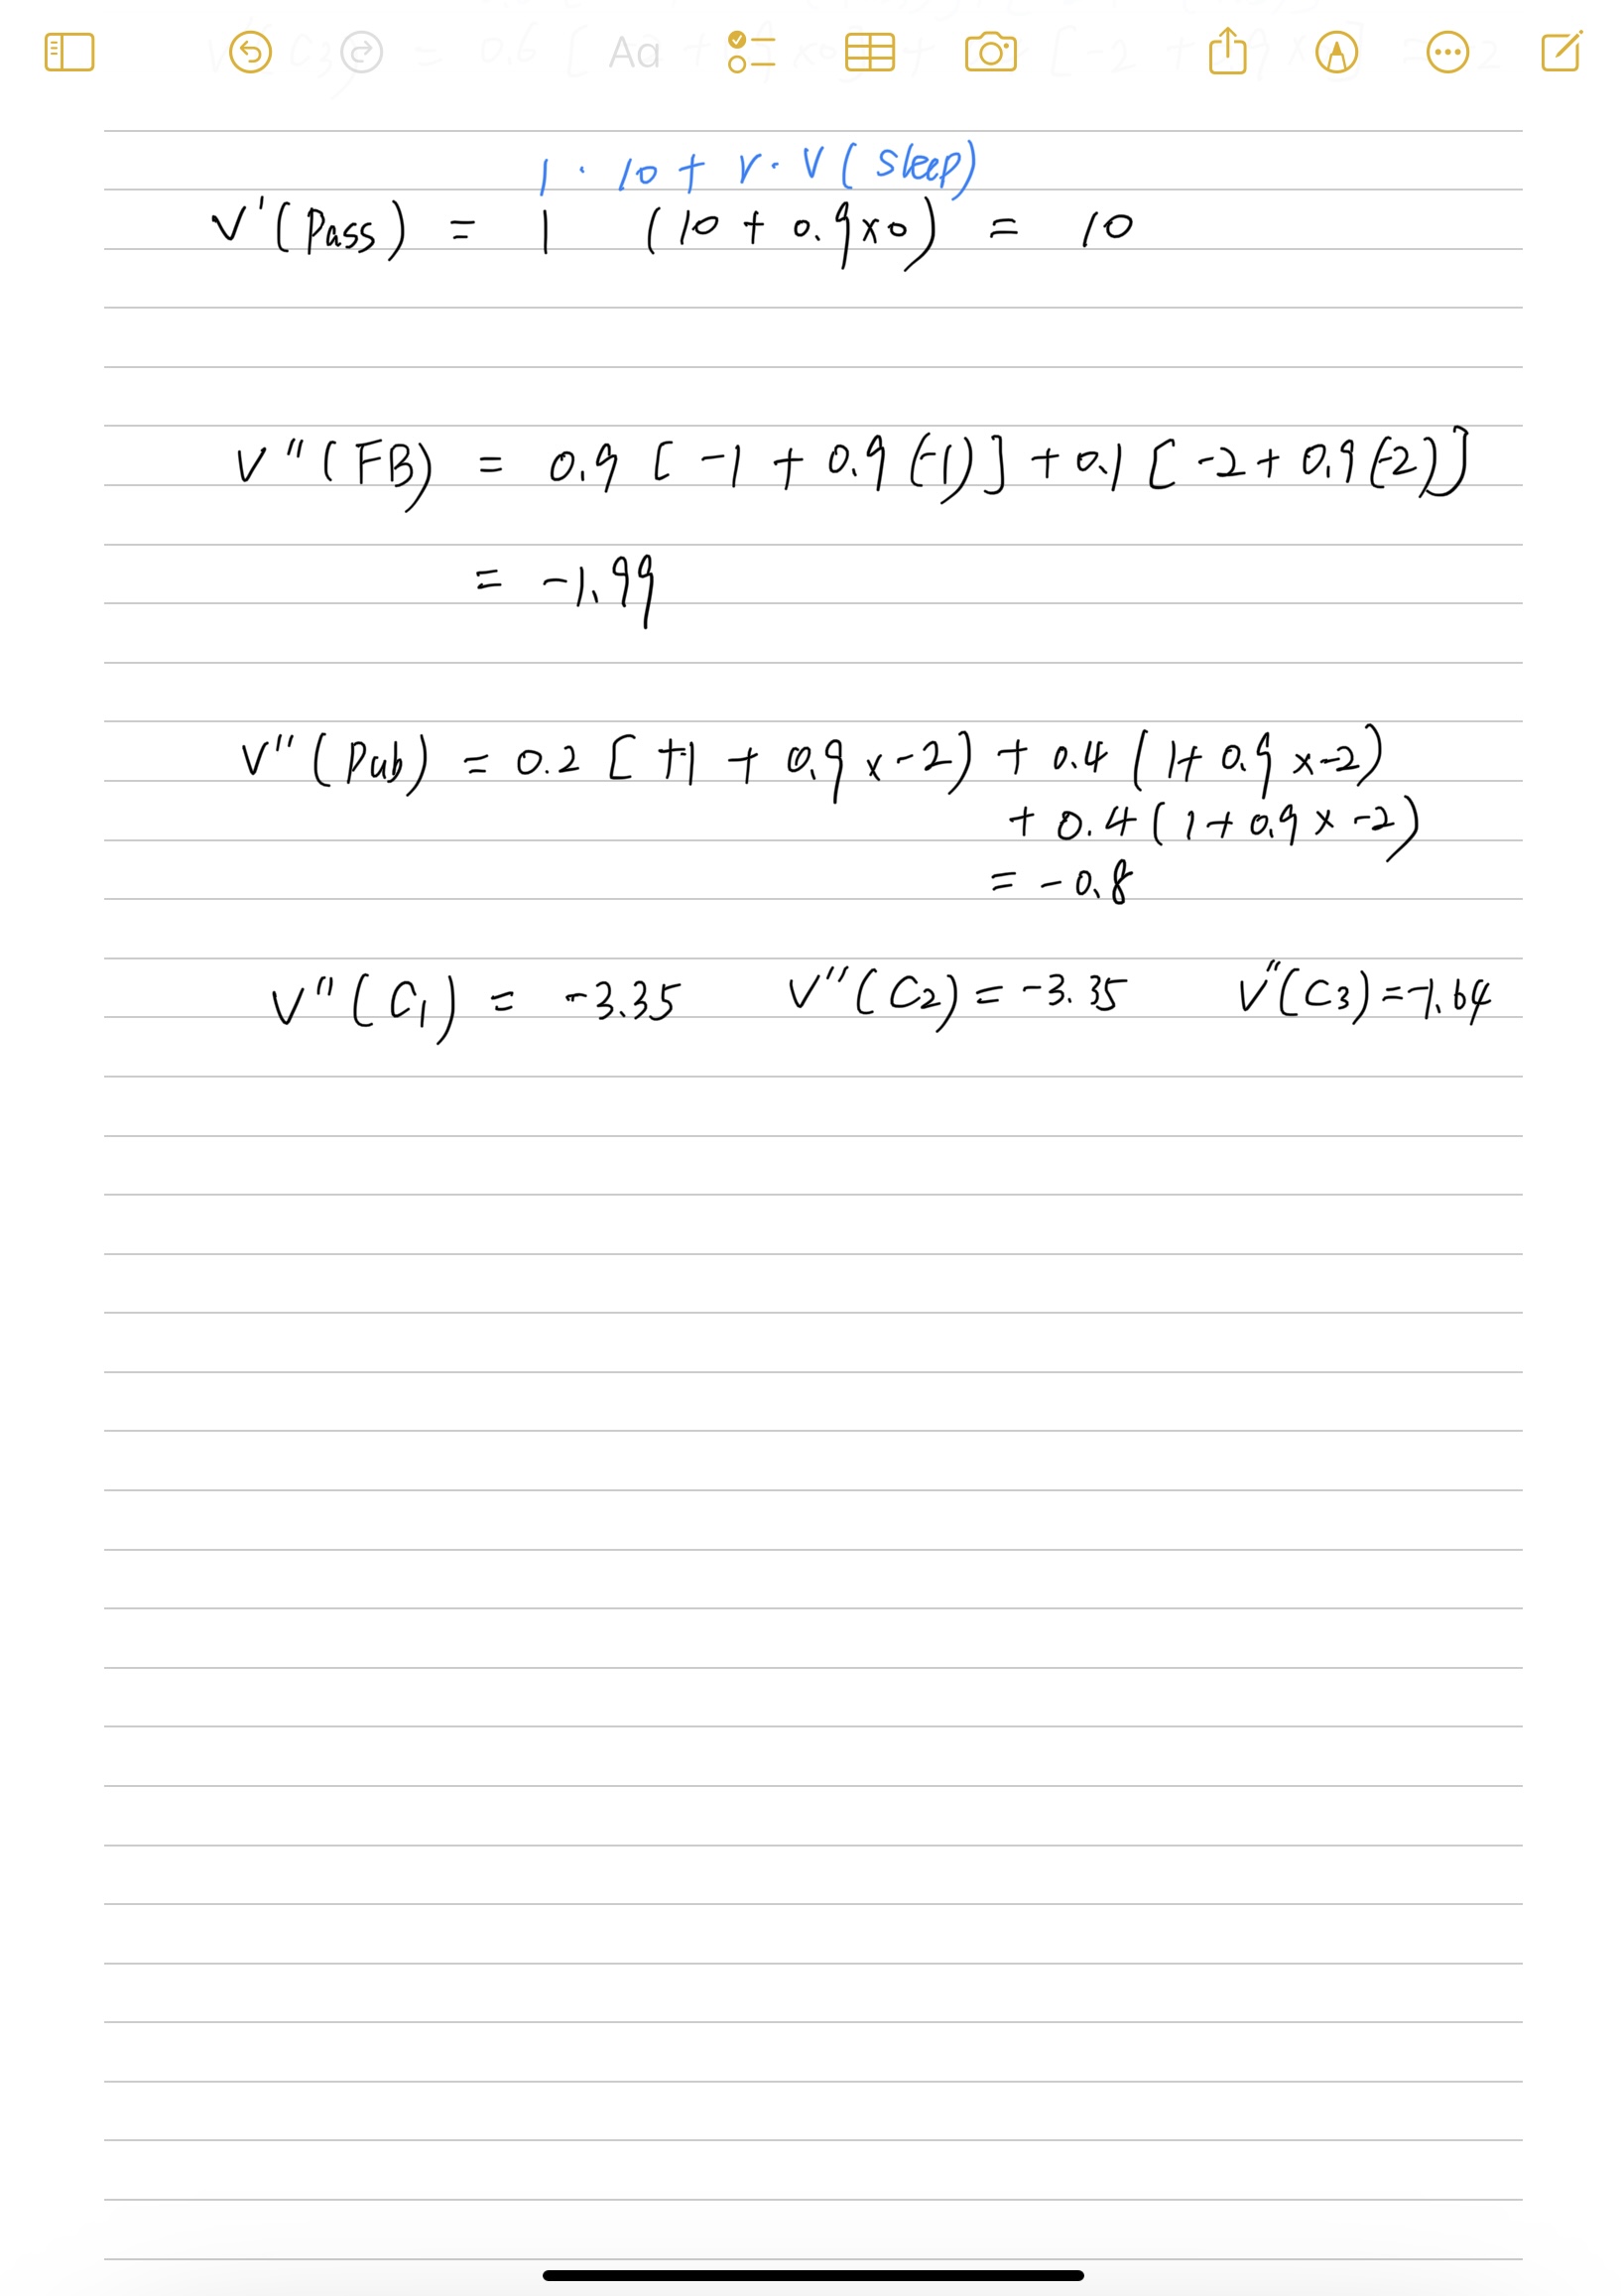 V C3) = 0.6 [ Aa
1 · 10 + r · V ( sleep)
V'(Pass) = 1 (10 + 0.9x0) = 10
V"(FB) = 0.9 [ -1 + 0.9 (-1)] + 0.1 [ -2 + 0.9 (-2)]
= -1.99
V"(Pub) = 0.2 [ +1 + 0.9 x -2) + 0.4 (1+ 0.9 x -2)
+ 0.4 ( 1 + 0.9 x -2)
= -0.8
V"(C1) = -3.35 V"(C2) = -3.35 V"(C3) = -1.64